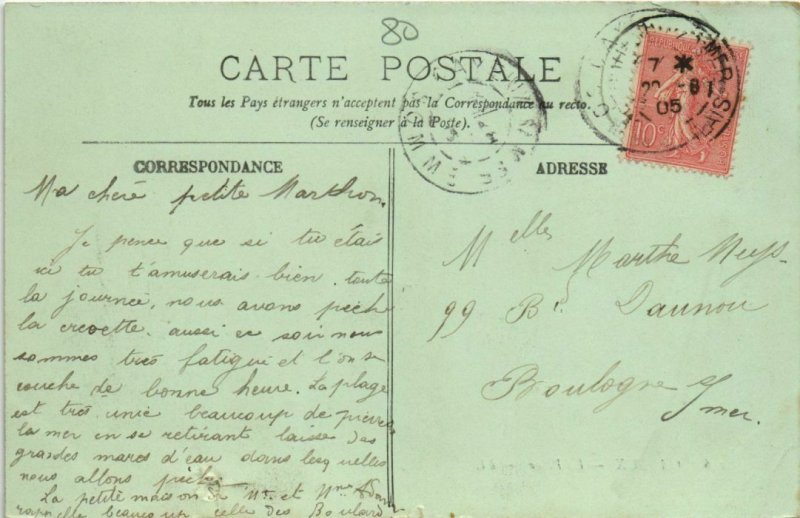 80
CARTE POSTALE
Tous les Pays étrangers n'acceptent pas la Correspondance au recto.
(Se renseigner à la Poste).
CORRESPONDANCE
Ma chère petite Marthon.
Je pence que si tu étais
ici tu t'amuserais bien. toute
la journée, nous avons pêché
la crevette. aussi ce soir nous
sommes très fatigué et l'on se
couche de bonne heure. La plage
est très unie beaucoup de pierres
la mer en se retirant laisse des
grandes mares d'eau dans lesquelles
nous allons pêcher
La petite maison de Mr. et Mme
rappelle beaucoup celle des
ADRESSE
Melle Marthe
99 Bd. Daunou
Boulogne
s/mer.
10c
7
05